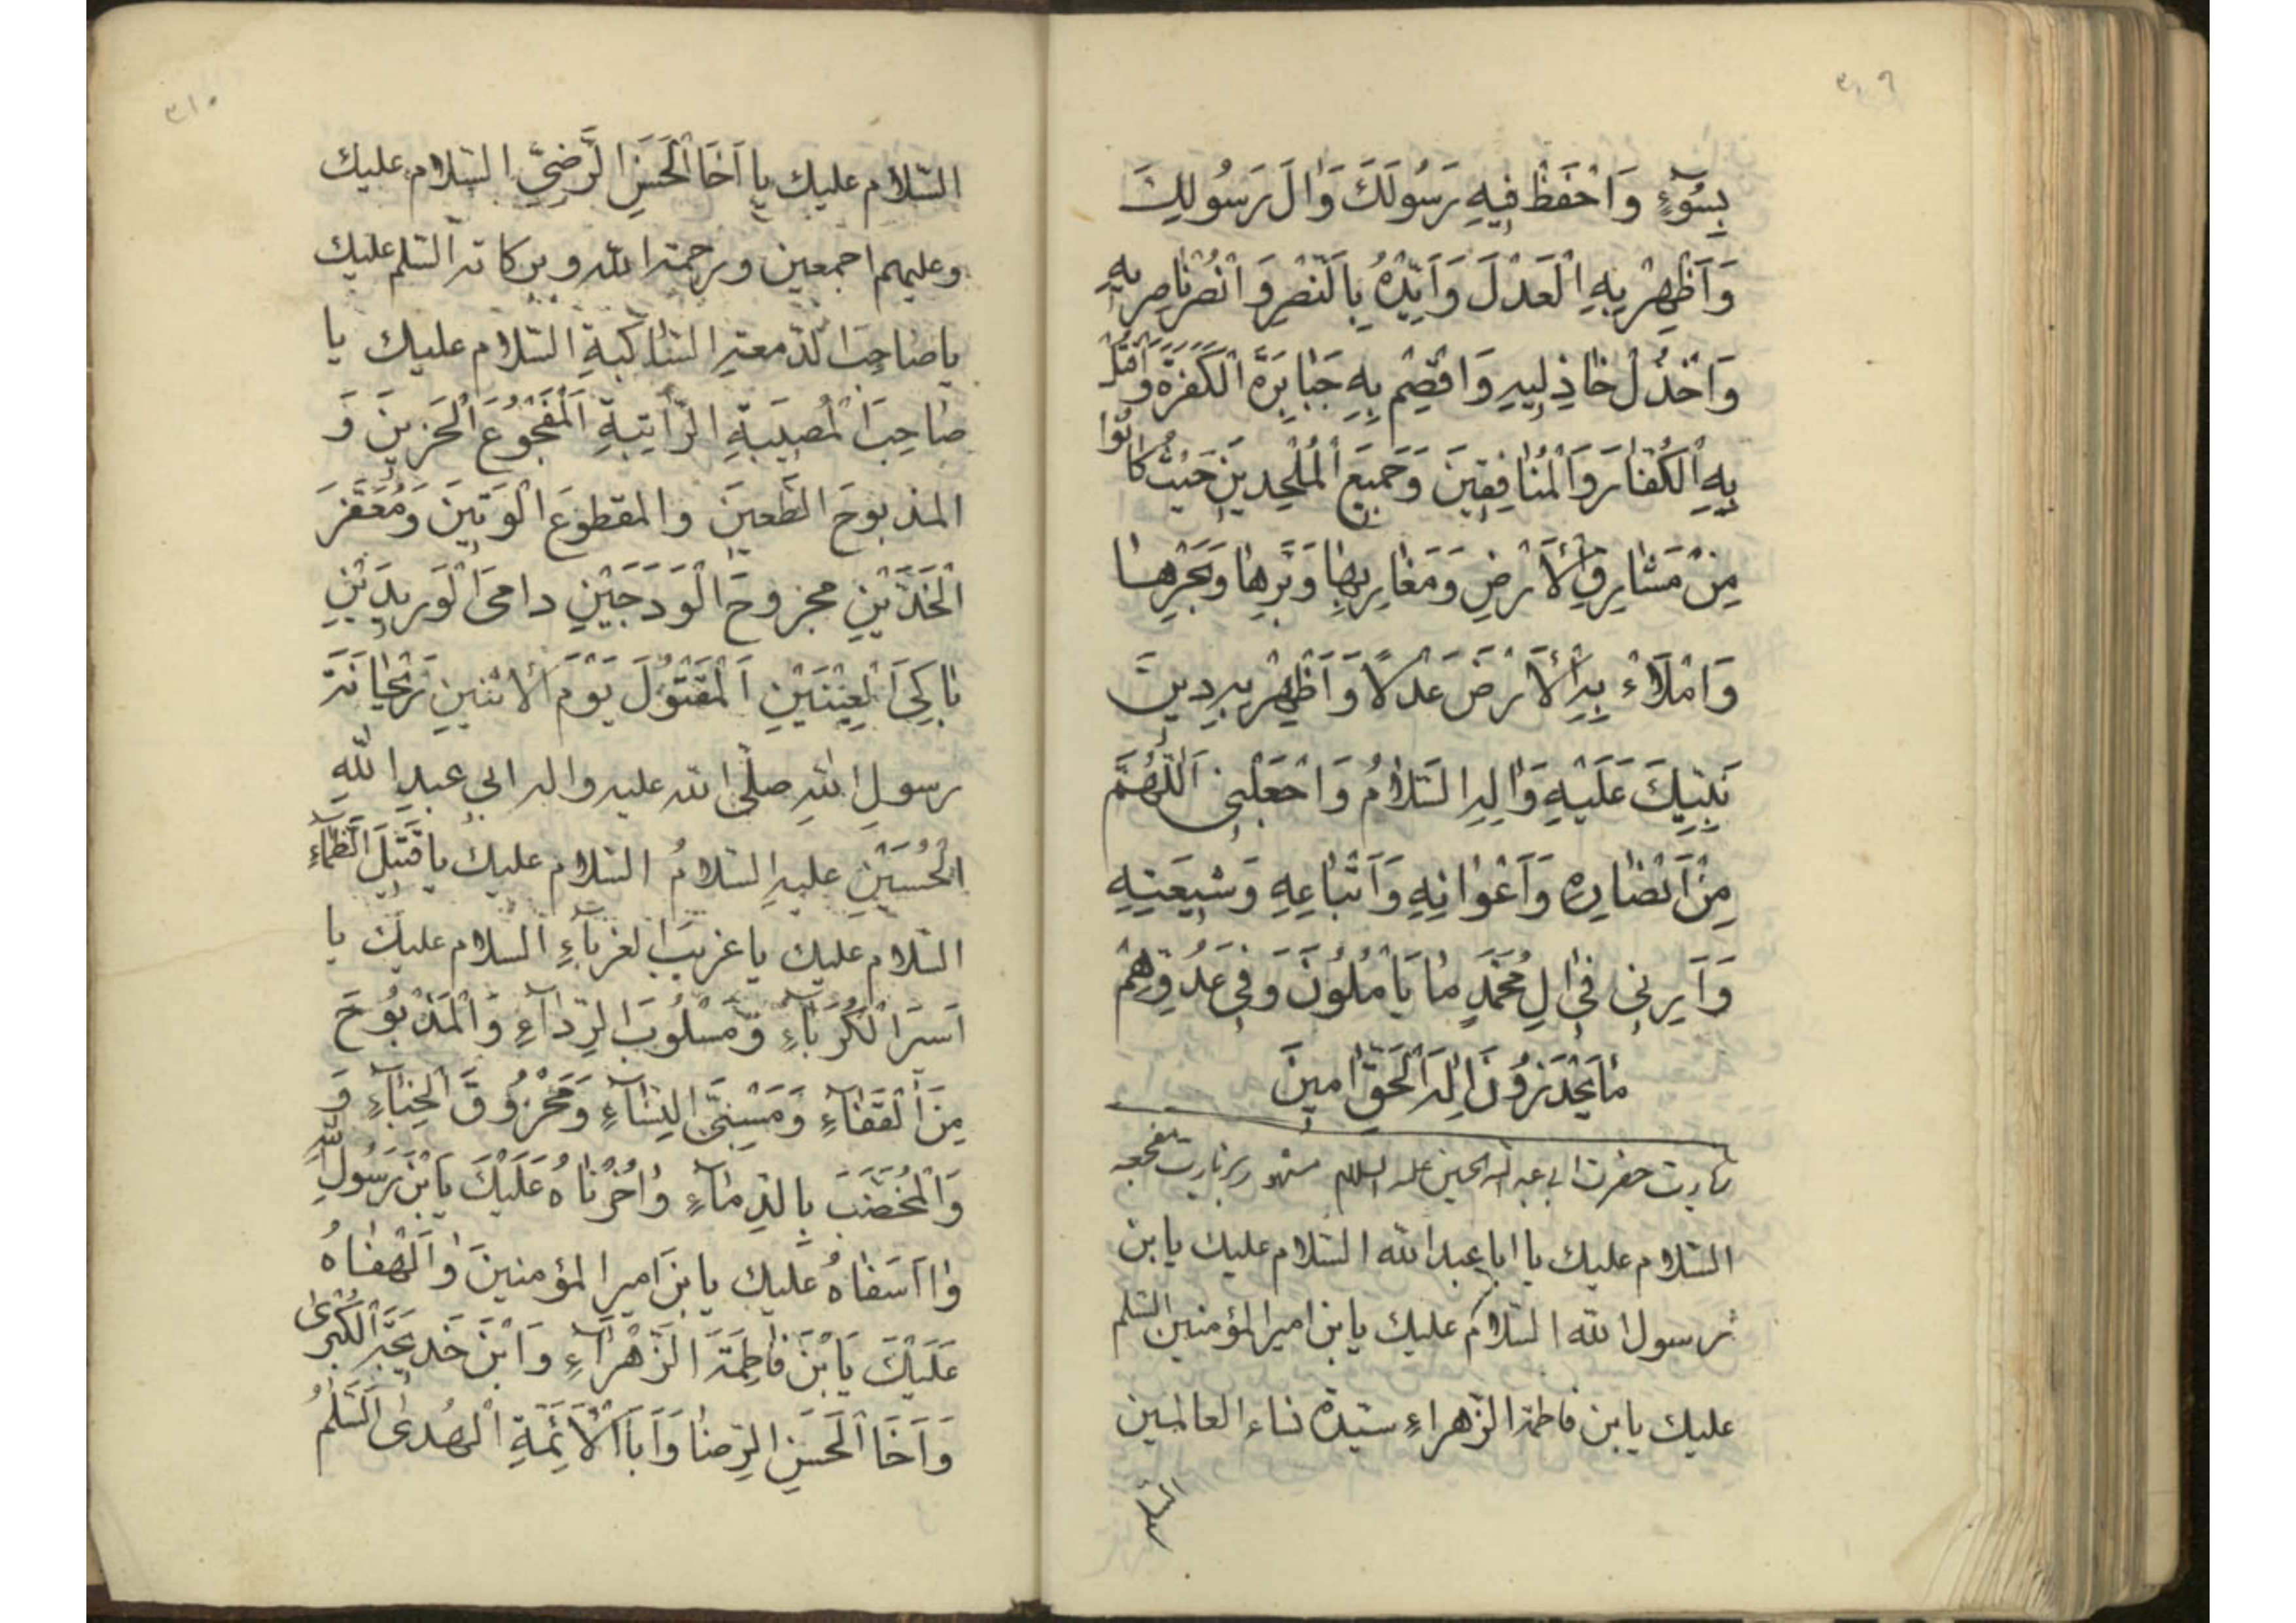 ٣٠٩
بِسُوۤءٍ وَاحْفَظْ فِيهِ رَسُولَكَ وَالَ رَسُولِكَ
وَاَظْهِرْ بِهِ الْعَدْلَ وَاَيِّدْهُ بِالنَّصْرِ وَانْصُرْ نٰاصِرِيهِ
وَاخْذُلْ خٰاذِلِيهِ وَاقْصِمْ بِهِ جَبٰابِرَةَ الْكَفَرَةِ وَاقْتُلْ
بِهِ الْكُفّٰارَ وَالْمُنٰافِقِينَ وَجَمِيعَ الْمُلْحِدِينَ حَيْثُ كٰانُوا
مِنْ مَشٰارِقِ الْاَرْضِ وَمَغٰارِبِهٰا وَبَرِّهٰا وَبَحْرِهٰا
وَامْلَاءْ بِهِ الْاَرْضَ عَدْلًا وَاَظْهِرْ بِهِ دِينَ
نَبِيِّكَ عَلَيْهِ وَاٰلِهِ السَّلٰامُ وَاجْعَلْنِي اَللّٰهُمَّ
مِنْ اَنْصٰارِهِ وَاَعْوٰانِهِ وَاَتْبٰاعِهِ وَشِيعَتِهِ
وَاَرِنِي فِي اٰلِ مُحَمَّدٍ مٰا يَاْمُلُونَ وَفِي عَدُوِّهِمْ
مٰا يَحْذَرُونَ اِلٰهَ الْحَقِّ اٰمِينَ
زيارت حضرت ابى عبد الله الحسين عليه السلام مشهور بزيارت مفجعه
السّلام عليك يا ابا عبد الله السّلام عليك يابن
رسول الله السّلام عليك يابن امير المؤمنين السّلم
عليك يابن فاطمة الزّهراءِ سيّدة نساء العالمين
السّلم
٣١٠
السّلام عليك يا اَخَا الْحَسَنِ الرَّضِيِّ السّلام عليك
وعليهم اجمعين ورحمة الله وبركاته السّلم عليك
يا صٰاحِبَ الدّمعةِ السّاكبةِ السّلام عليك يا
صٰاحِبَ الْمُصِيبَةِ الرّاتِبَةِ اَلْمَفْجُوعَ الْحَزِينَ وَ
المذبوحَ الطَّعينَ والمقطوعَ الْوَتِينَ وَمُعَفَّرَ
الْخَدَّيْنِ مجروحَ الْوَدَجَيْنِ دامىَ الْوَرِيدَيْنِ
بٰاكِيَ الْعَيْنَيْنِ اَلْمَقْتُولَ يَوْمَ الْاثنينِ رَيْحٰانَةَ
رسولِ اللهِ صلَّى الله عليه واله ابي عبدِ اللهِ
الْحُسَيْنِ عليهِ السّلامُ السّلام عليك يا قَتِيلَ الظَّمٰاۤءِ
السّلام عليك يا غريبَ الغرباۤءِ السّلام عليك يا
اَسيرَ الْكُرَبٰاۤءِ وَمَسْلُوبَ الرِّدٰاۤءِ وَالْمَذْبُوحَ
مِنَ الْقَفٰاۤءِ وَمَسْبِيَّ النِّسٰاۤءِ وَمَحْرُوقَ الْخِبٰاۤءِ وَ
وَالْمُخَضَّبَ بِالدِّمٰاۤءِ وٰاحُزْنٰاهُ عَلَيْكَ يَابْنَ رَسُولِ اللهِ
وٰا اَسَفٰاهُ عليك يابنَ اميرِ المؤمنينَ وٰا لَهْفٰاهُ
عَلَيْكَ يَابْنَ فٰاطِمَةَ الزَّهْرٰاۤءِ وَابْنَ خَدِيجَةَ الْكُبْرىٰ
وَاَخَا الْحَسَنِ الرِّضٰا وَاَبَا الْاَئِمَّةِ الْهُدىٰ اَلسَّلٰمُ